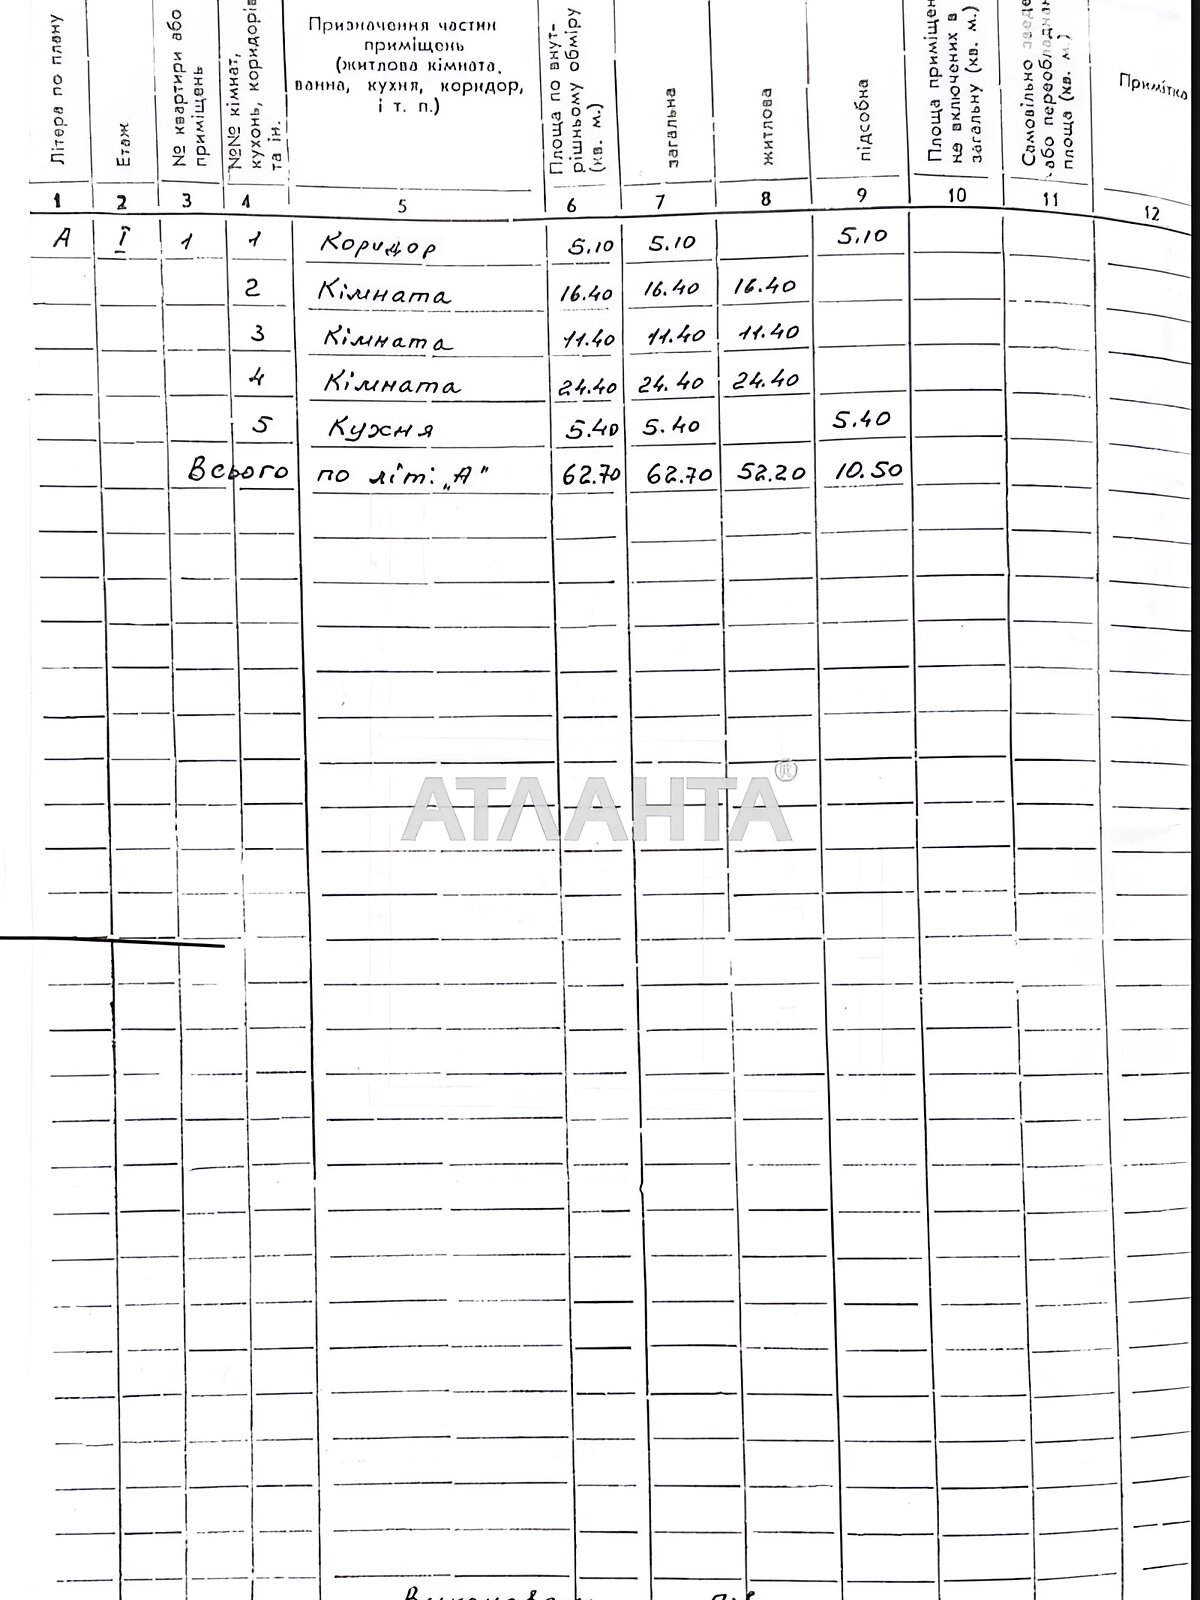 Літера по плану
Етаж
№ квартири або
приміщень
№№ кімнат,
кухонь, коридорів
та ін.
Призначення частин
приміщень
(житлова кімната,
ванна, кухня, коридор,
і т. п.)
Площа по внут-
рішньому обміру
(кв. м.)
загальна
житлова
підсобна
Площа приміщен
не включених в
загальну (кв. м.)
Самовільно зведе
або переобладнан
площа (кв. м.)
Примітка
1 2 3 4 5 6 7 8 9 10 11 12
А I 1 1 Коридор 5.10 5.10 5.10
2 Кімната 16.40 16.40 16.40
3 Кімната 11.40 11.40 11.40
4 Кімната 24.40 24.40 24.40
5 Кухня 5.40 5.40 5.40
Всього по літ: „А" 62.70 62.70 52.20 10.50
АТЛАНТА®